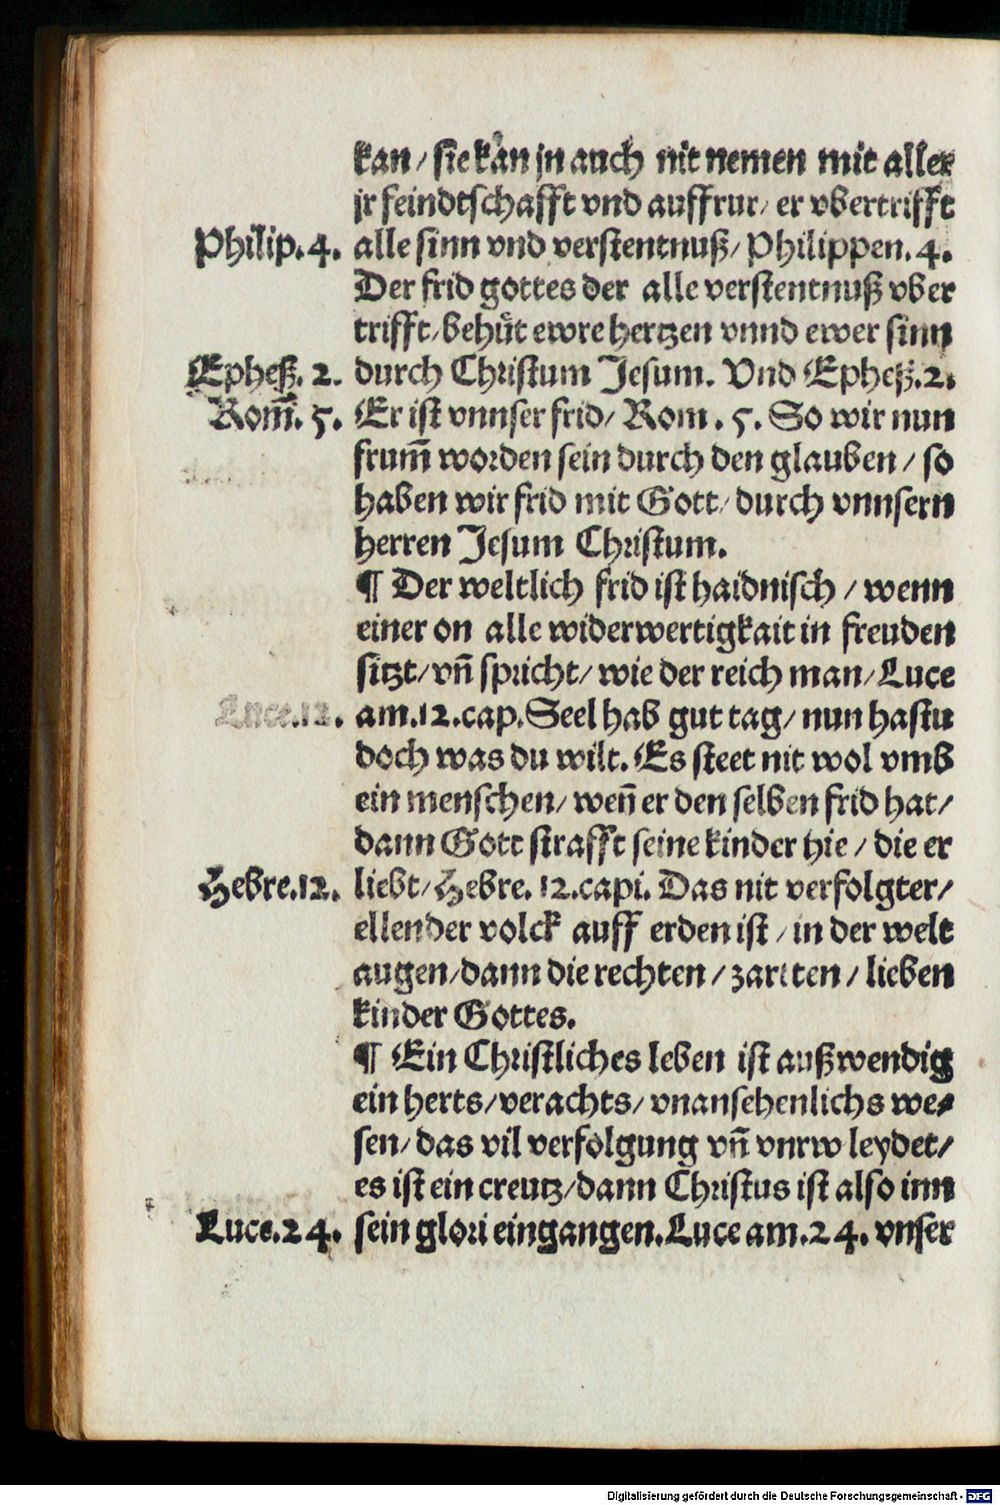 kan / sie kan jn auch nit nemen mit aller
jr feindtschafft vnd auffrur / er vbertrifft
Philip. 4. alle sinn vnd verstentnuß / Philippen. 4.
Der frid gottes der alle verstentnuß vber
trifft / behuͤt ewre hertzen vnnd ewer sinn
Epheß. 2. durch Christum Jesum. Vnd Epheß. 2.
Rom̄. 5. Er ist vnnser frid / Rom. 5. So wir nun
frum̄ worden sein durch den glauben / so
haben wir frid mit Gott / durch vnnsern
herren Jesum Christum.
¶ Der weltlich frid ist haidnisch / wenn
einer on alle widerwertigkait in freuden
sitzt / vn̄ spricht / wie der reich man / Luce
Luce. 12. am. 12. cap. Seel hab gut tag / nun hastu
doch was du wilt. Es steet nit wol vmb
ein menschen / wen̄ er den selben frid hat /
dann Gott strafft seine kinder hie / die er
Hebre. 12. liebt / Hebre. 12. capi. Das nit verfolgter /
ellender volck auff erden ist / in der welt
augen / dann die rechten / zartten / lieben
kinder Gottes.
¶ Ein Christliches leben ist außwendig
ein herts / verachts / vnansehenlichs we⸗
sen / das vil verfolgung vn̄ vnrw leydet /
es ist ein creutz / dann Christus ist also inn
Luce. 24. sein glori eingangen. Luce am. 24. vnser
Digitalisierung gefördert durch die Deutsche Forschungsgemeinschaft - DFG